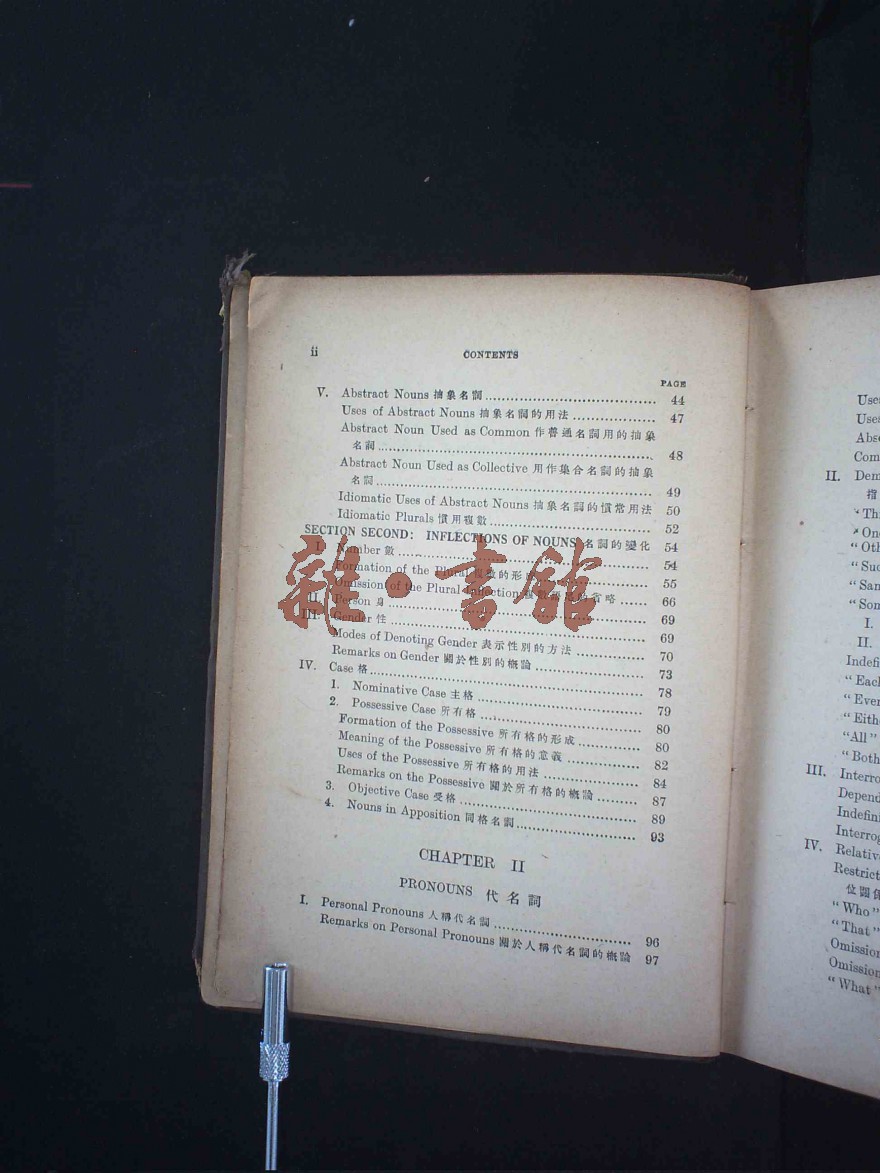 ii CONTENTS
PAGE
V. Abstract Nouns 抽象名詞 44
Uses of Abstract Nouns 抽象名詞的用法 47
Abstract Noun Used as Common 作普通名詞用的抽象
名詞 48
Abstract Noun Used as Collective 用作集合名詞的抽象
名詞 49
Idiomatic Uses of Abstract Nouns 抽象名詞的慣常用法 50
Idiomatic Plurals 慣用複數 52
SECTION SECOND: INFLECTIONS OF NOUNS 名詞的變化 54
I. Number 數 54
Formation of the Plural 複數的形 55
Omission of the Plural Inflection 的省略 66
II. Person 身 69
III. Gender 性 69
Modes of Denoting Gender 表示性別的方法 70
Remarks on Gender 關於性別的概論 73
IV. Case 格 78
1. Nominative Case 主格 79
2. Possessive Case 所有格 80
Formation of the Possessive 所有格的形成 80
Meaning of the Possessive 所有格的意義 82
Uses of the Possessive 所有格的用法 84
Remarks on the Possessive 關於所有格的概論 87
3. Objective Case 受格 89
4. Nouns in Apposition 同格名詞 93
CHAPTER II
PRONOUNS 代名詞
I. Personal Pronouns 人稱代名詞 96
Remarks on Personal Pronouns 關於人稱代名詞的概論 97
雜·書館
II. Dem
指
"Thi
"On
"Oth
"Suc
"San
"Som
I.
II.
Indefi
"Each
"Ever
"Eithe
"All"
"Both
III. Interro
Depend
Indefini
Interrog
IV. Relativ
Restrict
位關係
"Who"
"That"
Omission
Omission
"What"